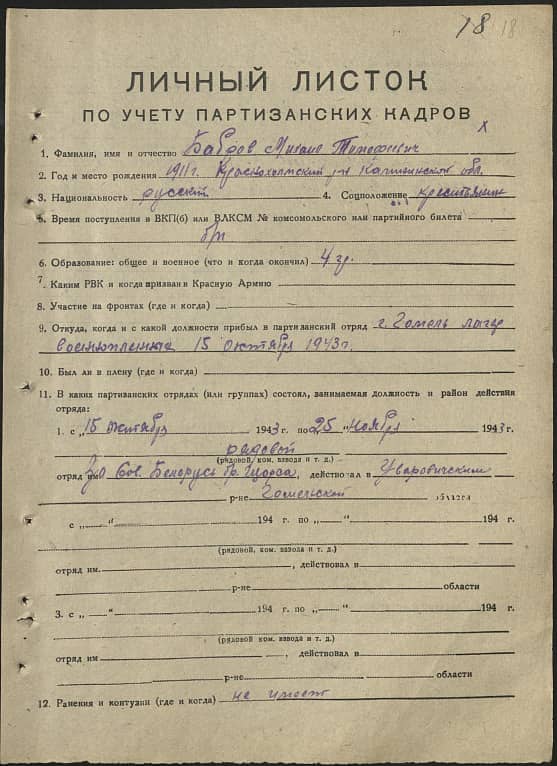 18 18
ЛИЧНЫЙ ЛИСТОК
ПО УЧЕТУ ПАРТИЗАНСКИХ КАДРОВ
х
1. Фамилия, имя и отчество Бобров Михаил Тимофеевич
2. Год и место рождения 1911 г. Краснохолмский р-н Калининской обл.
3. Национальность русский 4. Соцположение крестьянин
5. Время поступления в ВКП(б) или ВЛКСМ № комсомольского или партийного билета
б/п
6. Образование: общее и военное (что и когда окончил) 4 гр.
7. Каким РВК и когда призван в Красную Армию
8. Участие на фронтах (где и когда)
9. Откуда, когда и с какой должности прибыл в партизанский отряд г. Гомель лагер
военнопленные 15 октября 1943 г.
10. Был ли в плену (где и когда)
11. В каких партизанских отрядах (или группах) состоял, занимаемая должность и район действия
отряда:
1. с „15 октября 1943 г. по „25" ноября 1943 г.
рядовой
(рядовой, ком. взвода и т. д.)
отряд им. За Сов. Белорусь бр. Щорса, действовал в Уваровичским
р-не Гомельской области
с „ " 194 г. по „ " 194 г.
(рядовой, ком. взвода и т. д.)
отряд им. , действовал в
р-не области
3. с „ " 194 г. по „ " 194 г.
(рядовой, ком. взвода и т. д.)
отряд им. , действовал в
р-не области
12. Ранения и контузии (где и когда) не имеет